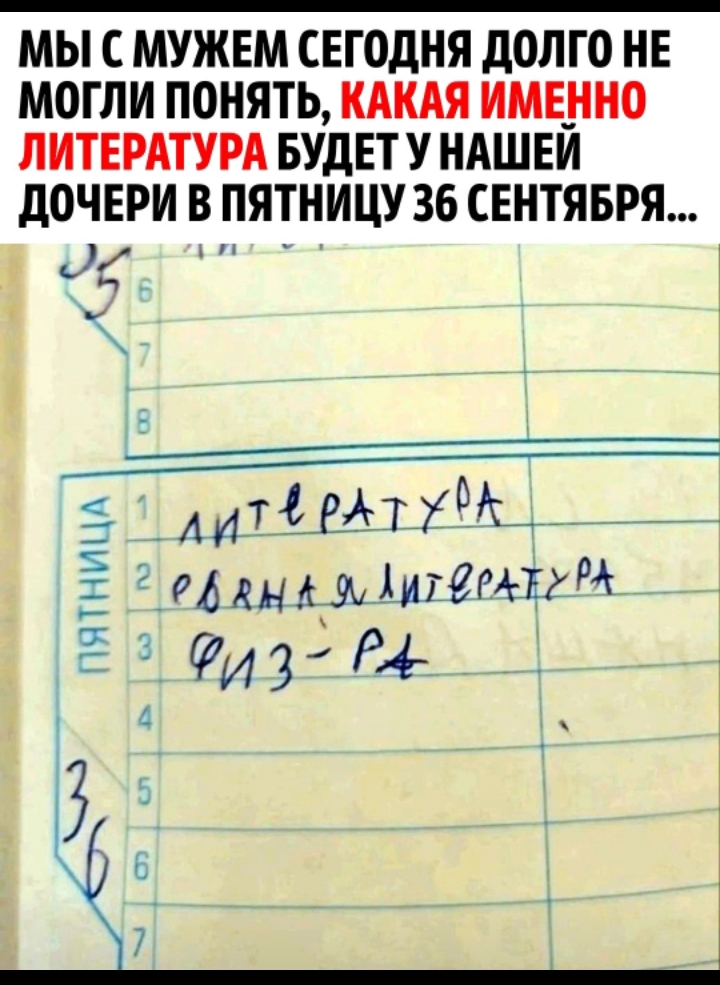 МЫ С МУЖЕМ СЕГОДНЯ ДОЛГО НЕ
МОГЛИ ПОНЯТЬ, КАКАЯ ИМЕННО
ЛИТЕРАТУРА БУДЕТ У НАШЕЙ
ДОЧЕРИ В ПЯТНИЦУ 36 СЕНТЯБРЯ...
5
6
7
8
ПЯТНИЦА
1 ЛИТЕРАТУРА
2 ЛИТЕРАТУРА
3 ФИЗ-РА
4
5
6
7
36